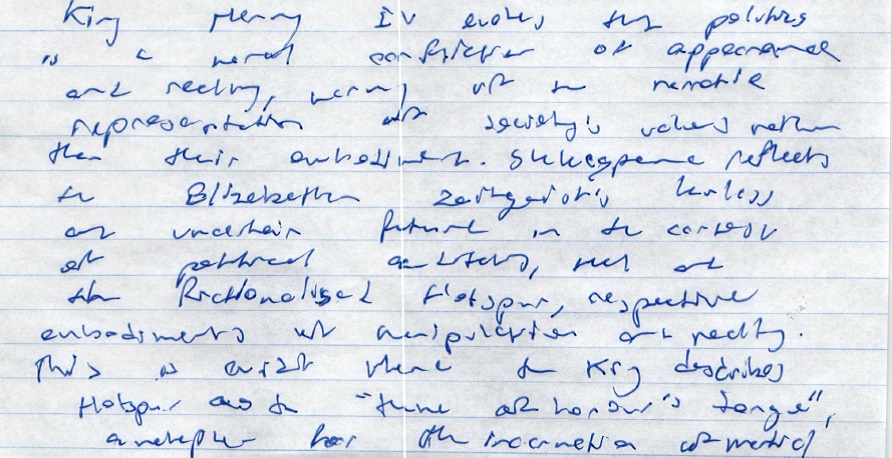 King Henry IV evokes the politics
as a moral confliction of appearance
and reality, very of the
representation of society's values rather
than their embodiment. Shakespeare reflects
the Elizabethan zeitgeist's
an uncertain future in the context
of political and
the Fictionalised Hotspur, respective
embodiments of manipulation and reality.
This is evident where the King describes
Hotspur as the "theme of honour's tongue",
a metaphor for the incarnation of